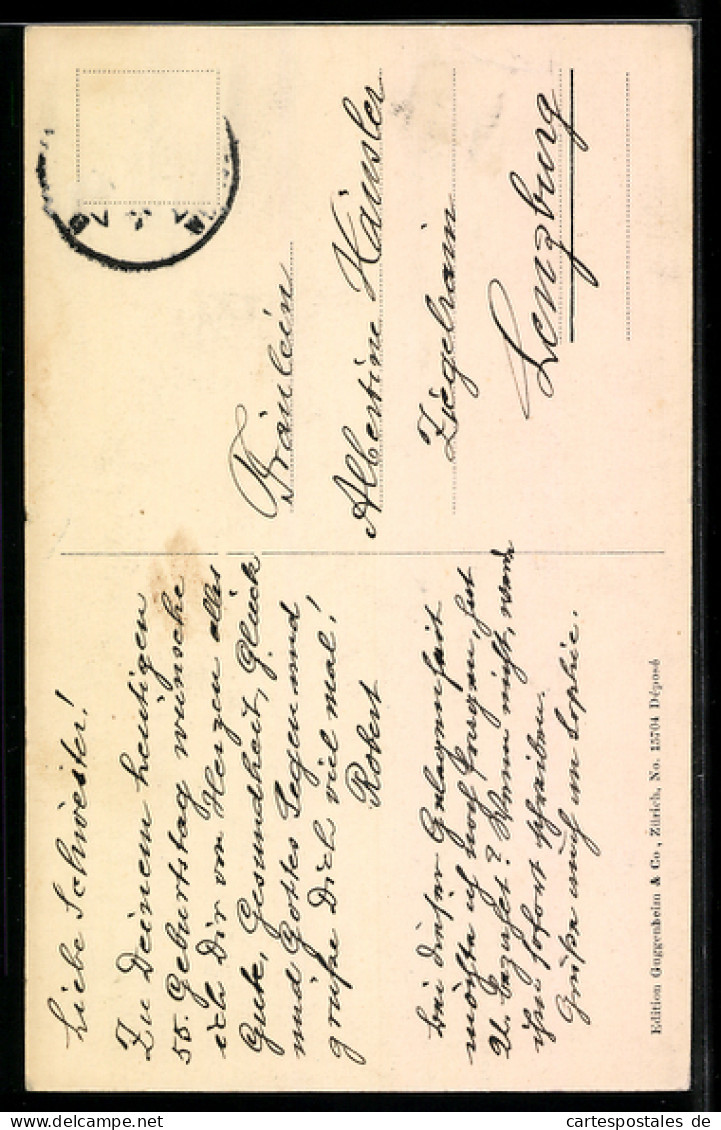 Liebe Schwester!
Zu Deinem heutigen
55. Geburtstag wünsche
ich Dir von Herzen alles
Gute, Gesundheit, Glück
und Gottes Segen und
grüße Dich viel mal!
Robert
Bei dieser Gelegenheit
möchte ich noch fragen, hat
U. bezahlt? Wenn nicht, werde
ihm sofort schreiben.
Grüße auch an Sophie.
Fräulein
Albertine Häusler
Ziegelrain
Lenzburg
Edition Guggenheim & Co., Zürich, No. 15704 Déposé
cartespostales de